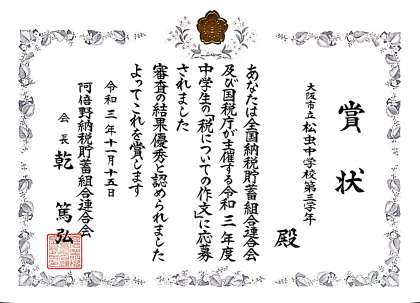 賞状
大阪市立松虫中学校第三学年
殿
あなたは全国納税貯蓄組合連合会
及び国税庁が主催する令和三年度
中学生の「税についての作文」に応募
されました
審査の結果優秀と認められました
よってこれを賞します
令和三年十一月十五日
阿倍野納税貯蓄組合連合会
会長 乾 篤弘